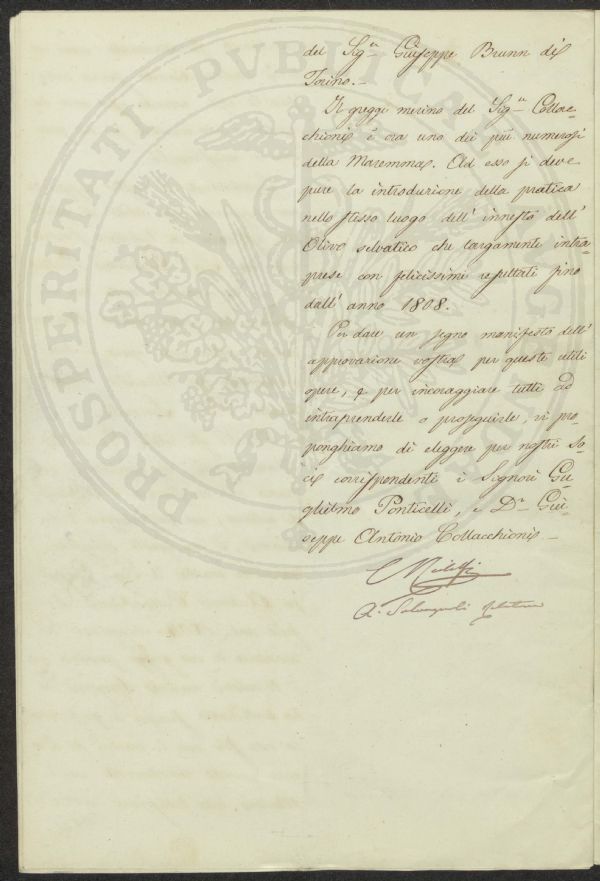 del Sig.r Giuseppe Brunn di
Torino. —
Il gregge merino del Sig.re Collac=
chioni è ora uno dei più numerosi
della Maremma. Ad esso si deve
pure la introduzione della pratica
nello stesso luogo dell' innesto dell'
Olivo selvatico che largamente intra=
prese con felicissimi resultati fino
dall' anno 1808.
Per dare un segno manifesto dell'
approvazione vostra per queste utili
opere, e per incoraggiare tutti ad
intraprenderle o proseguirle, vi pro=
ponghiamo di eleggere per nostri So=
ci corrispondenti i Signori Gu=
glielmo Ponticelli, e D.r Giu=
seppe Antonio Collacchioni —
A. Salvagnoli relatore
PROSPERITATI PUBLICAE AUG